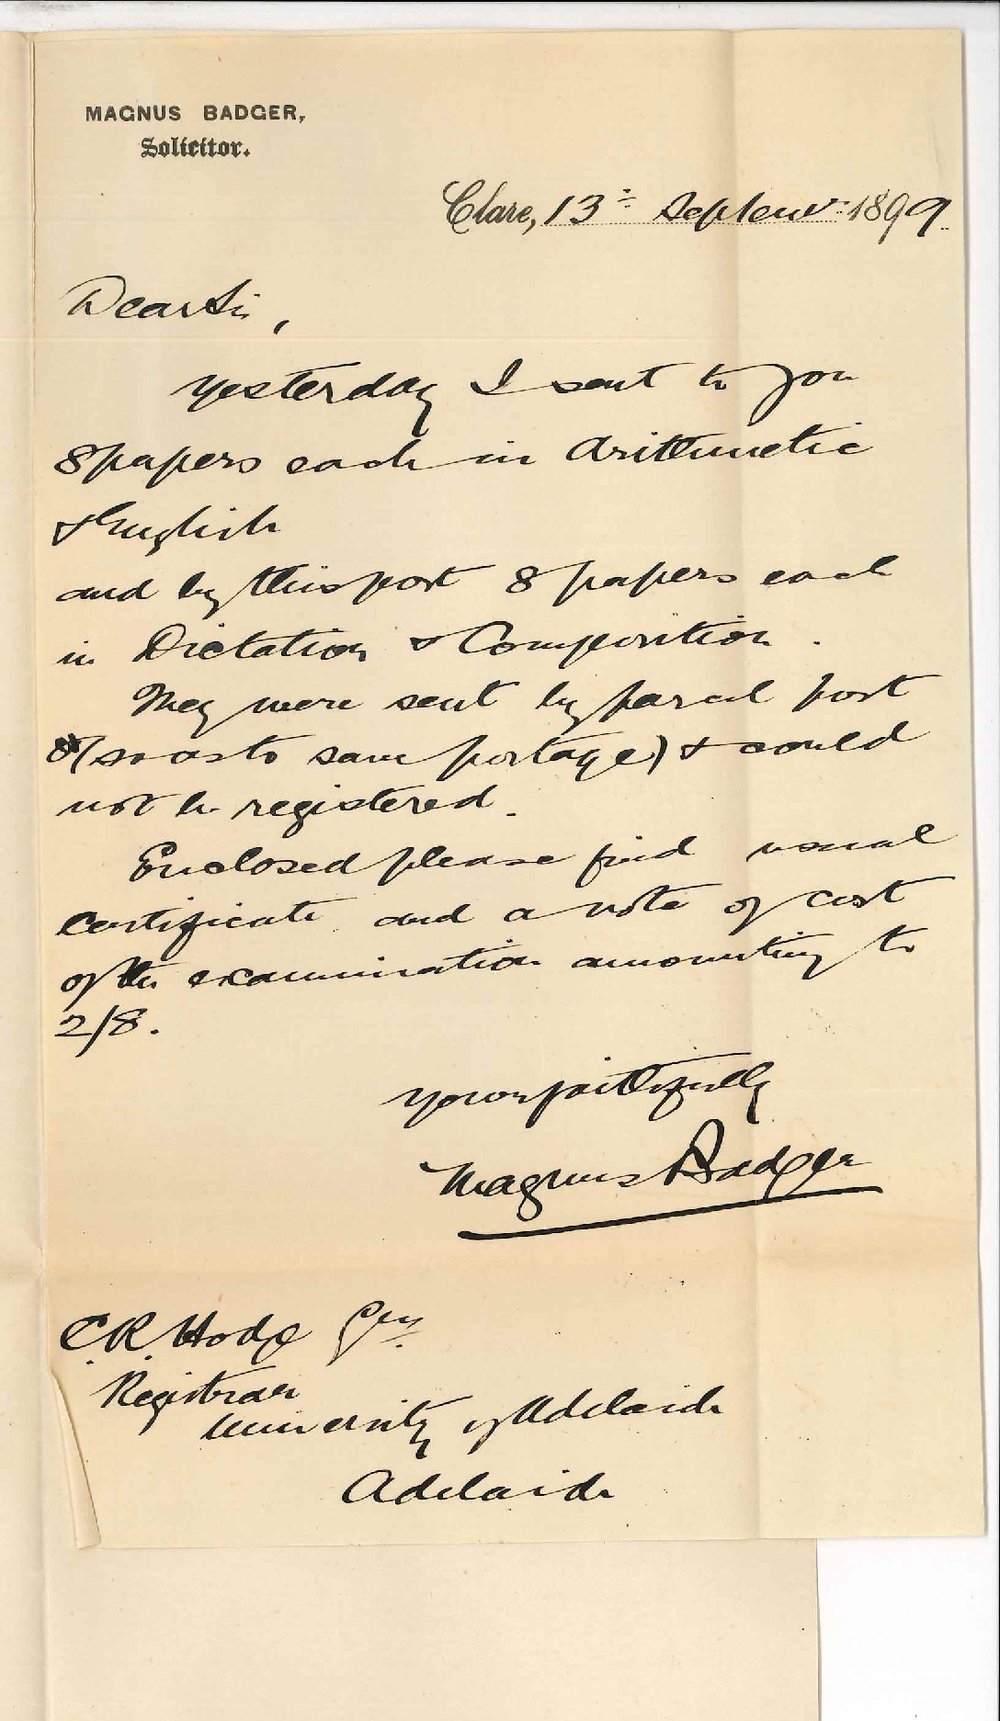 MAGNUS BADGER,
Solicitor.
Clare, 13th Septemr: 1899.
Dear Sir,
Yesterday I sent to you
8 papers each in Arithmetic
& English
and by this post 8 papers each
in Dictation & Composition.
They were sent by parcel post
(so as to save postage) & could
not be registered.
Enclosed please find usual
certificate and a note of cost
of the examination amounting to
2/8.
Yours faithfully
Magnus Badger
C.R. Hodge
Registrar
University of Adelaide
Adelaide